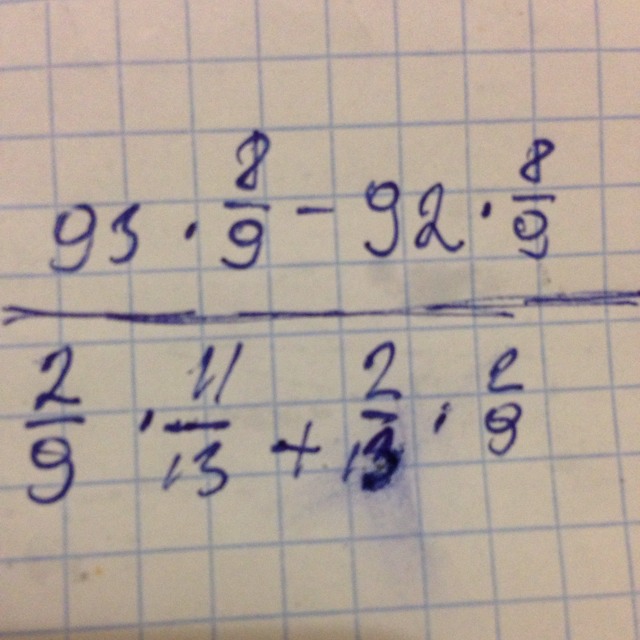 93 · 8/9 - 92 · 8/9
2/9 · 11/13 + 2/13 · 2/9